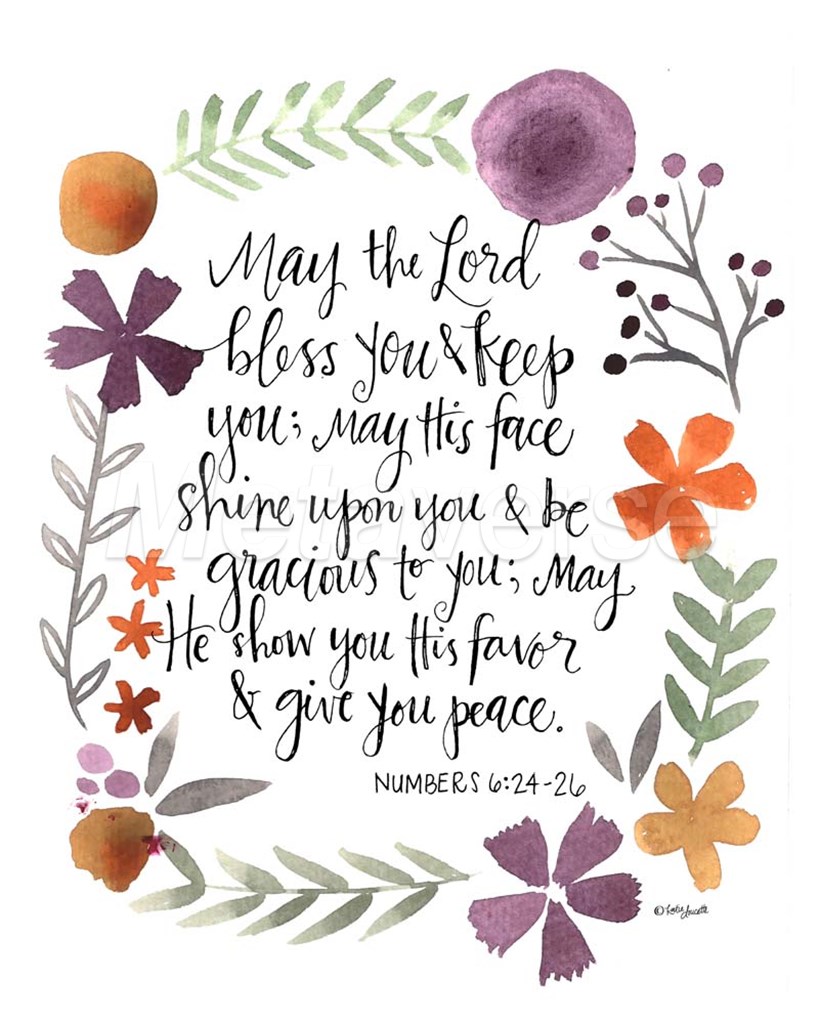 May the Lord
bless you & keep
you; May His face
shine upon you & be
gracious to you; May
He show you His favor
& give you peace.
NUMBERS 6:24-26
Metaverse